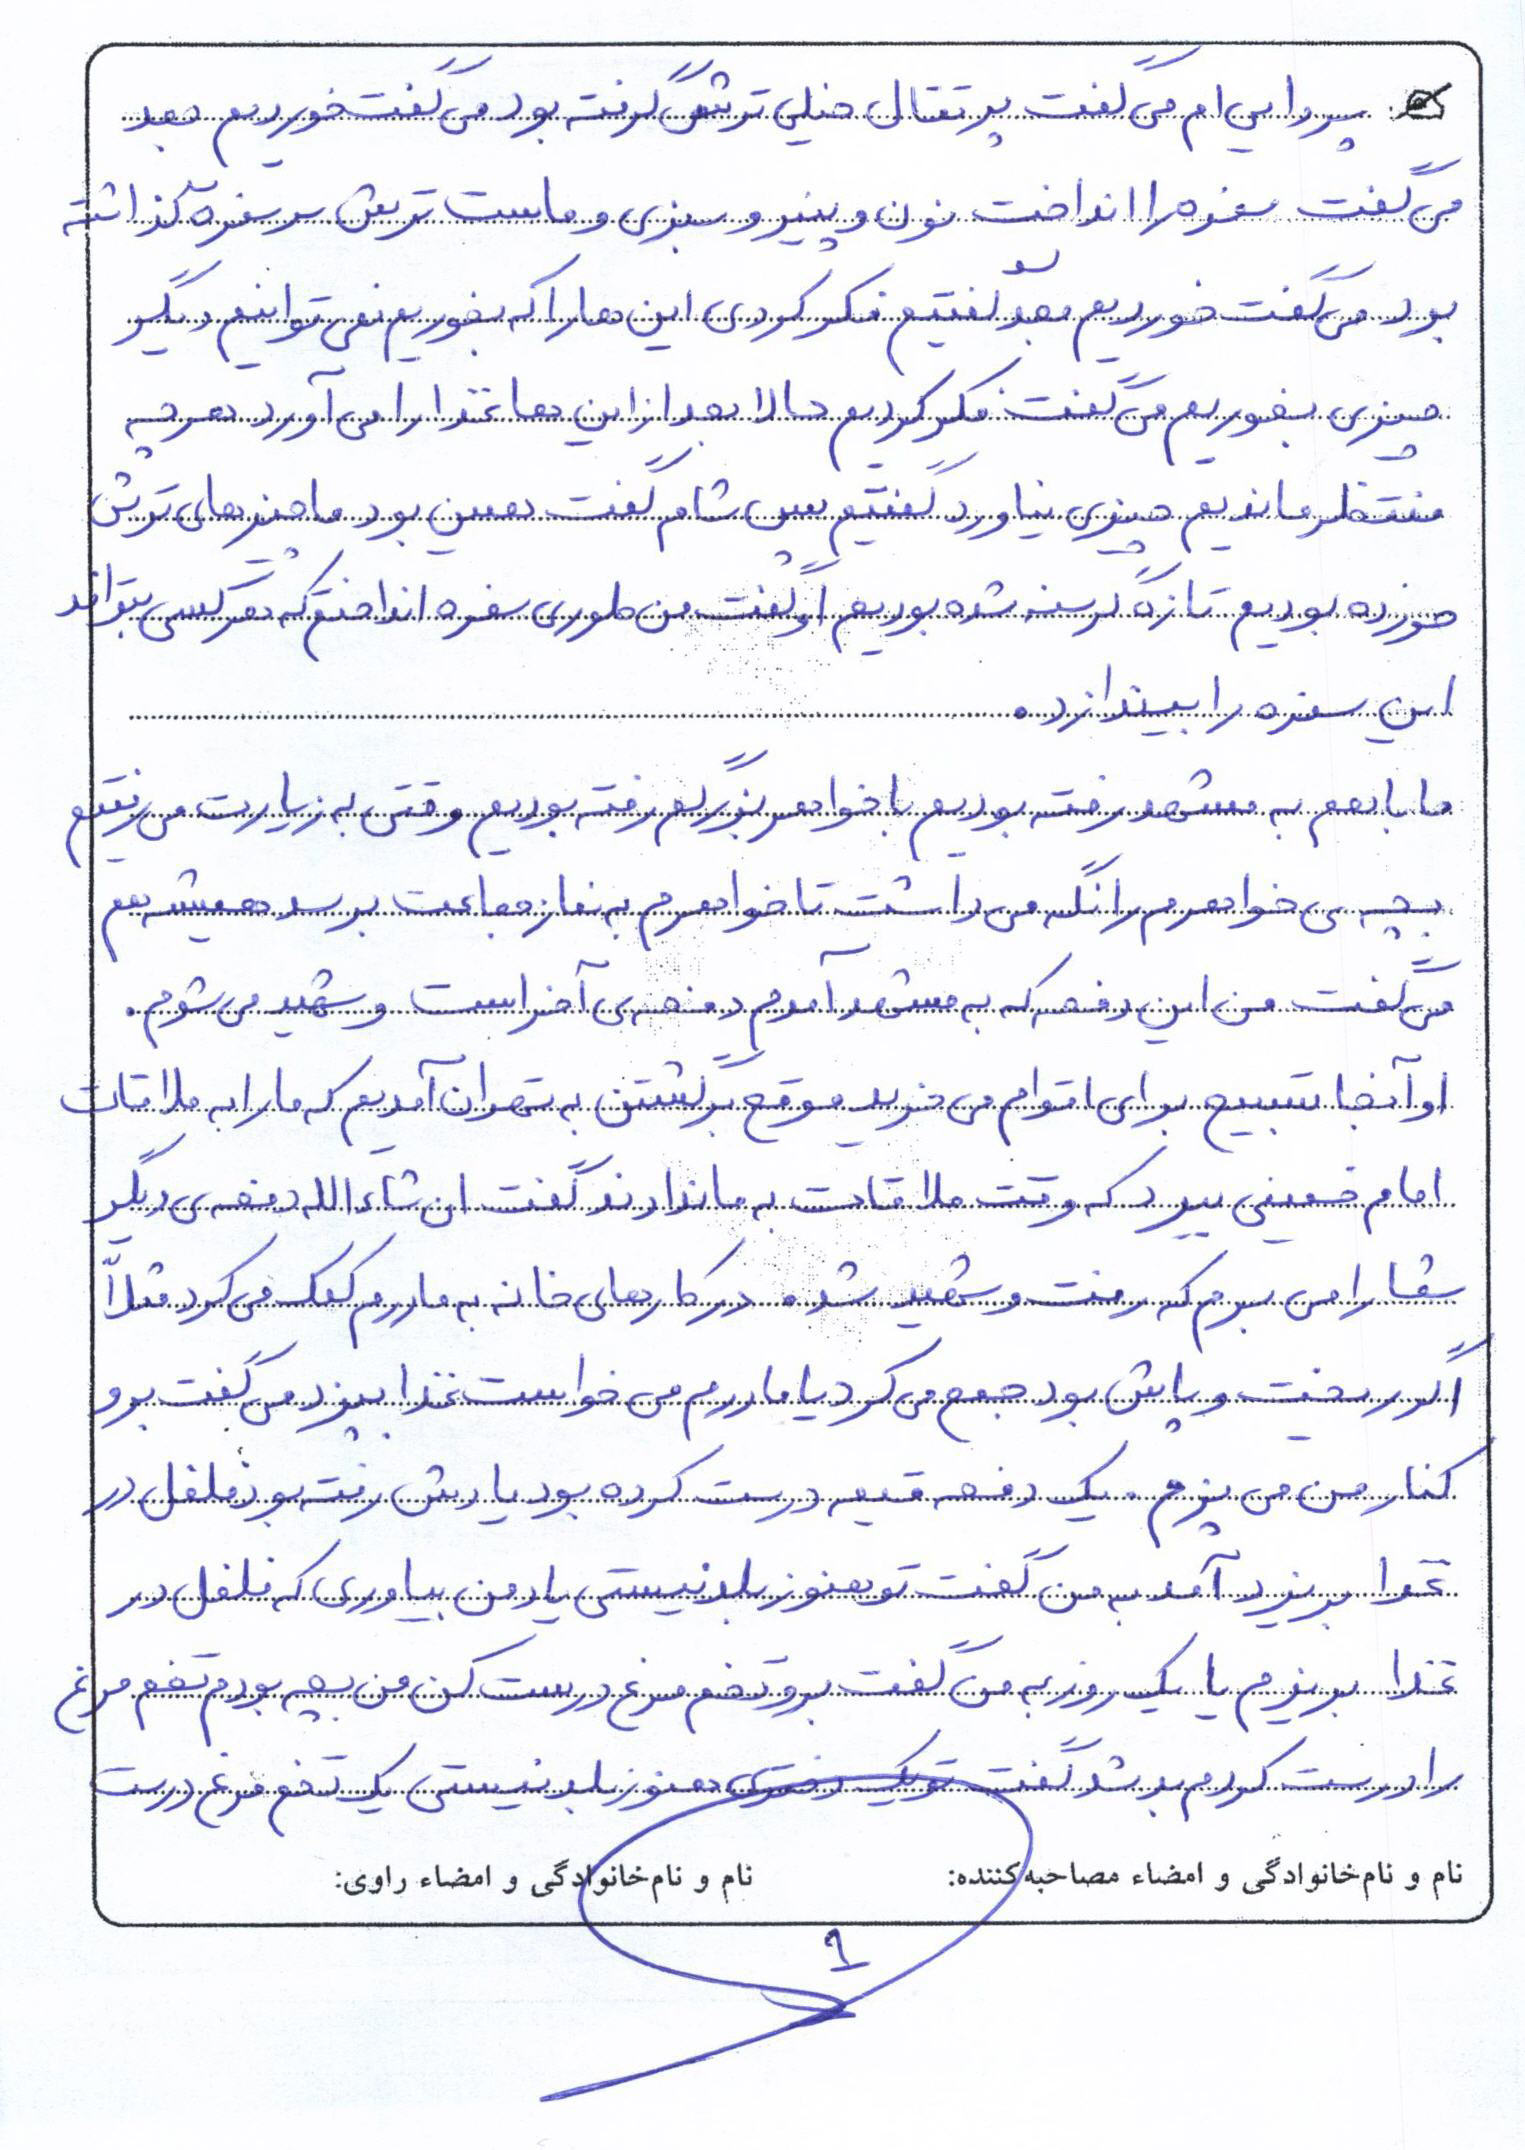 پسردایی ام می گفت پرتقال خیلی ترش گرفته بود می گفت خوردیم بعد
می گفت سفره را انداخت نون و پنیر و سبزی و ماست ترش سر سفره گذاشته
بود می گفت خوردیم بعد گفتیم فکر کردی این ها را که بخوریم نمی توانیم دیگر
چیزی بخوریم می گفت فکر کردیم حالا بعد از این ها غذا را می آورد هر چه
منتظر ماندیم چیزی نیاورد گفتیم پس شام گفت همین بود ما چیزهای ترش
خورده بودیم تازه گرسنه شده بودیم او گفت من طوری سفره انداختم که هر کسی بتواند
این سفره را بیندازد.
ما باهم به مشهد رفته بودیم با خواهر بزرگم رفته بودیم وقتی به زیارت می رفتیم
بچه ی خواهرم را نگه می داشت تا خواهرم به نماز جماعت برسد همیشه هم
می گفت من این دفعه که به مشهد آمدم دفعه ی آخر است و شهید می شوم.
او آنجا تسبیح برای اقوام می خرید موقع برگشتن به تهران آمدیم که ما را به ملاقات
امام خمینی ببرد که وقت ملاقات به ما ندادند گفت ان شاء الله دفعه ی دیگر
شما را می برم که رفت و شهید شد. در کارهای خانه به مادرم کمک می کرد مثلاً
اگر ریخت و پاش بود جمع می کرد یا مادرم می خواست غذا بپزد می گفت برو
کنار من می پزم. یک دفعه قیمه درست کرده بود یادش رفته بود فلفل در
غذا بریزد آمد به من گفت تو هنوز بلد نیستی یاد من بیاوری که فلفل در
غذا بریزم یا یک روز به من گفت برو تخم مرغ درست کن من بچه بودم تخم مرغ
را درست کردم بد شد گفت تو یک دختری هنوز بلد نیستی یک تخم مرغ درست
نام و نام خانوادگی و امضاء مصاحبه کننده: نام و نام خانوادگی و امضاء راوی: